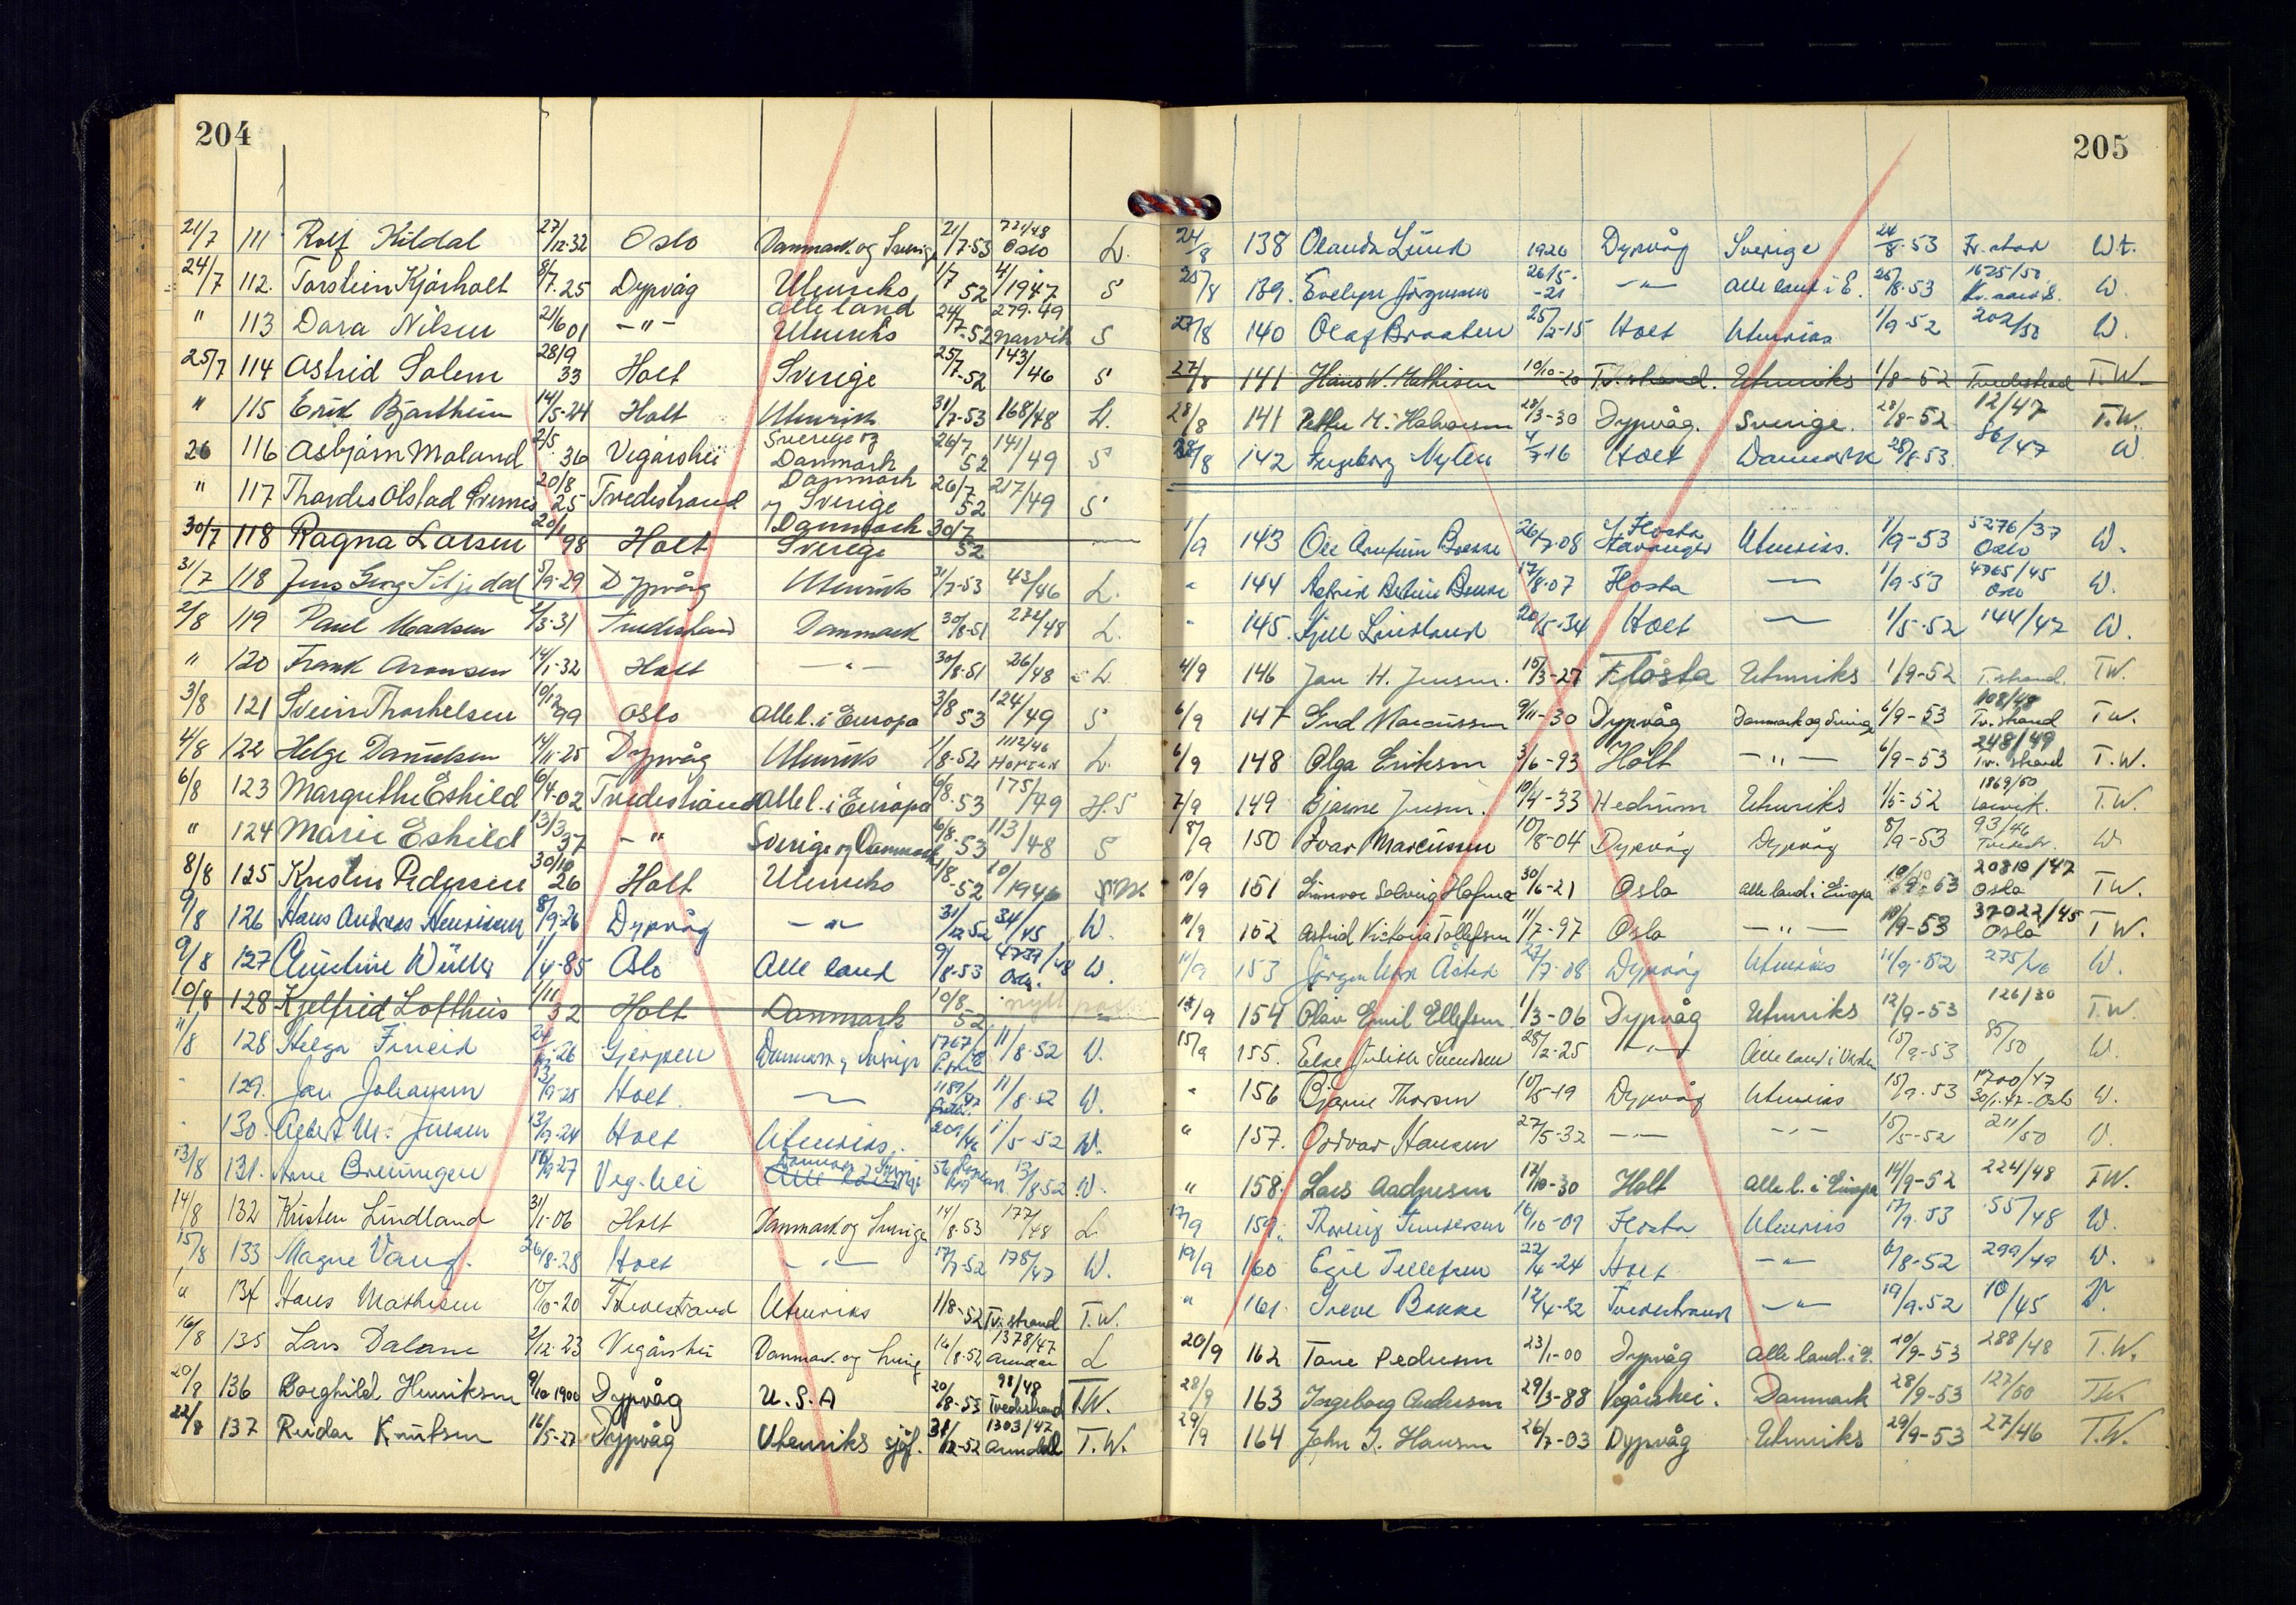 204
21/7 111 Rolf Kildal 27/12-32 Oslo Danmark og Sverige 21/7-53 721/48 Oslo L.
24/7 112. Torstein Kjørholt 8/7.25 Dypvåg Utenriks 1/7 52 4/1947 S
" 113 Dora Nilsen 21/6 01 -"- Alle land Utenriks 24/7-52 279.49 Narvik S
25/7 114 Astrid Solem 28/9 33 Holt Sverige 25/7-52 143/46 S
" 115 Erik Bjortheim 14/5-24 Holt Utenrik 31/7-53 168/48 L.
26 116 Asbjørn Moland 2/5 36 Vegårshei Sverige og Danmark 26/7 52 141/49 S
" 117 Thordis Olstad 20/8 25 Tvedestrand Danmark og Sverige 26/7 52 217/49 S
30/7 118 Ragna Larsen 20/1 98 Holt Danmark Sverige 30/7 52
31/7 118 Jens Georg Siljedal 5/9-29 Dypvåg Utenriks 31/7-53 43/46 L.
2/8 119 Paul Madsen 2/3-31 Tvedestrand Danmark 30/8-51 272/48 L.
" 120 Frank Aronsen 14/1-32 Holt -"- 30/8-51 26/48 L.
3/8 121 Svein Thorkelsen 10/12 99 Oslo Alle l. i Europa 3/8 53 124/49 S
4/8 122 Helge Danielsen 14/11-25 Dypvåg Utenriks 1/8-52 1112/46 Horten L.
6/8 123 Margrethe Eskild 6/4-02 Tvedestrand Alle l. i Europa 6/8.53 175/49 H.S
" 124 Marie Eskild 13/3 37 -"- Sverige og Danmark 6/8.53 113/48 S
8/8 125 Kristen Pedersen 30/10 26 Holt Utenriks 1/8.52 10/1946
9/8 126 Hans Andreas Henriksen 8/9-26 Dypvåg -"- 31/12-52 34/45 W.
9/8 127 1/4-85 Oslo Alle land 9/8-53 4739/48 Oslo. W.
10/8 128 Kjelfrid Lofthus 1/11 32 Holt Danmark 10/8 52 nytt pass
11/8 128 Helga Fineid Gjerpen Danmark og Sverige 1767/ 11/8-52 W.
" 129. Jan Johansen 13/9-25 Holt. 1189/47 11/8-52 W.
" 130. Albert M. Jensen 13/9-24 Holt Utenriks. 209/46 1/5-52 W.
13/8 131. Arne Breiungen 16/9-27 Veg.hei Danmark Sverige Alle land 13/8-52 W.
14/8 132 Kristen Lindland 31/1-06 Holt Danmark og Sverige 14/8-53 177/48 L
15/8 133 Magne Vang. 26/8-28 Holt -"- 17/7-52 178/47 W.
" 134 Hans Mathisen 10/10-20 Tvedestrand Utenriks 1/8-52 Tv.strand T.W.
16/8 135 Lars Dalane 2/12-23 Vegårshei Danmark og Sverig 16/8-52 1378/47 Arendal L
20/8 136 Borghild Henriksen 9/10 1900 Dypvåg U.S.A 20/8-53 98/48 Tvedestrand T.W.
22/8 137 Reidar Knutsen 16/5-27 Dypvåg Utenriks sjøf. 31/12-52 1303/47 Arendal T.W.
205
24/8 138 Olanda Lund 1926 Dypvåg Sverige 24/8-53 Fr.stad W.
25/8 139. Evelyn Jørgensen 26/5--21 -"- Alle land i E. 25/8-53 1625/50 Kr.sand S. W.
27/8 140 Olaf Braaten 25/12-15 Holt Utenriks 1/9-52 202/50 W.
27/8 141 Hans W. Mathisen 10/10-20 Tv.strand. Utenriks 1/8-52 Tvedestrand T.W.
28/8 141 Petter M. Halvorsen 28/3-30 Dypvåg. Sverige. 28/8-52 12/47 T.W.
28/8 142 Ingeborg Nylen 4/7-16 Holt Danmark 28/8-53. 86/47 W
1/9 143 Ole Arnfinn Bakke 26/7-08 Flosta Stavanger Utenriks. 1/9-53 5276/37 Oslo W.
" 144 Astrid Bakke 17/8-07 Flosta 1/9-53 4765/45 Oslo W.
" 145. Kjell Lindland 20/5-34 Holt 1/5-52 144/47 W.
4/9 146 Jan H. Jensen. 15/3-27 Flosta Utenriks 1/9-52 T.strand. T.W.
6/9 147 Gud Marcussen 9/11-30 Dypvåg Danmark og Sverige 6/9-53 108/48 Tv.strand T.W.
6/9 148 Olga Eriksen 3/6-93 Holt -"- 6/9-53 248/49 Tv.strand T.W.
7/9 149 Bjarne Jensen. 10/4-33 Hedrum Utenriks 1/5-52 1869/50 Larvik. T.W.
8/9 150 Ivar Marcussen 10/8-04 Dypvåg Dypvåg 8/9-53 93/46 W.
10/9 151 Solveig 30/6-21 Oslo Alle land i Europa 10/9-53 20810/47 Oslo T.W.
10/9 152 Astrid Victoria Tollefsen 11/7-97 Oslo -"- 10/9-53 37022/45 Oslo T.W.
11/9 153 Jørgen 27/7-08 Dypvåg Utenriks 11/9-52 275/46 W.
12/9 154 Olav Emil Ellefsen 1/3-06 Dypvåg Utenriks 12/9-53 126/50 T.W.
15/9 155. Else Svendsen 25/2-25 -"- Alle land i Verden 15/9-53 85/50 W.
" 156 Bjarne Thorsen 10/5-19 Dypvåg Utenriks 15/9-53 1700/47 30/1-47-Oslo W.
" 157. Oddvar Hansen 27/5-32 -"- -"- 15/5-52 211/50 W.
" 158. Lars Aadnesen 17/10-30 Holt Alle l. i Europa 14/9-52 224/48 T.W.
17/9 159. 16/10-09 Flosta Utenriks 17/9-53 55/48 W.
19/9 160 Egil Tellefsen 22/4-24 Holt -"- 6/8-52 299/49 W.
" 161. Greve Bakke 12/4-22 Tvedestrand -"- 19/9-52 10/45 W.
20/9 162 Tone Pedersen 23/1-00 Dypvåg Alle land. i E. 20/9-53 288/48 T.W.
28/9 163 Ingeborg Andersen 29/3-88 Vegårshei. Danmark 28/9-53 127/50 T.W.
29/9 164 John J. Hansen 26/7-03 Dypvåg Utenriks 29/9-53 27/46 T.W.